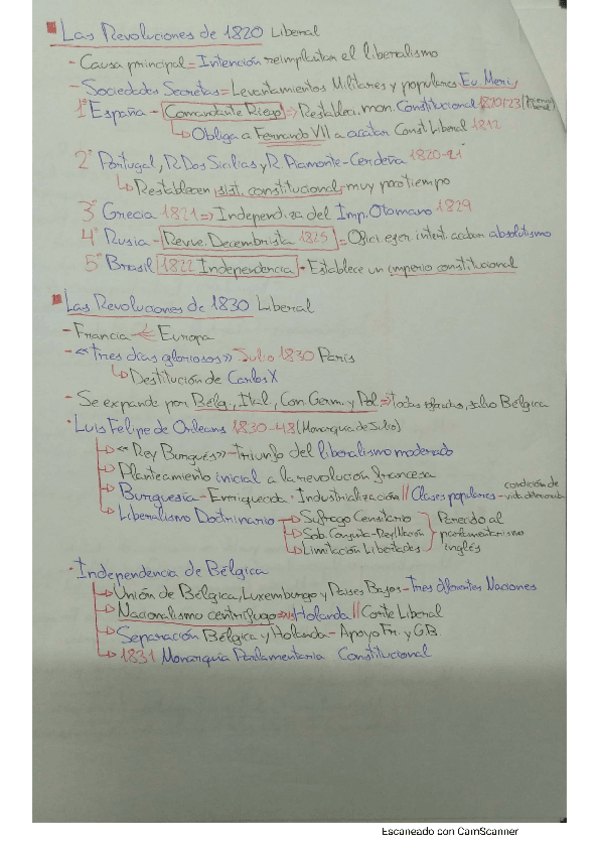 Las Revoluciones de 1820 Liberal
- Causa principal = Intención reimplantan el liberalismo
- Sociedades Secretas = Levantamientos Militares y populares. Eu. Meri.
1º España - Comandante Riego => Restableci. mon. Constitucional 1820/23
Obliga a Fernando VII a acatar Const Liberal 1812
2º Portugal, R. Dos Sicilias y R. Piamonte-Cerdeña 1820-21
Restablecen sist. constitucional muy poco tiempo
3º Grecia 1821 => Independ.za del Imp. Otomano 1829
4º Rusia - Revue. Decembrista 1825 = Ofici. ejer. intent. acaban absolutismo
5º Brasil 1822 Independencia - Establece un imperio constitucional
Las Revoluciones de 1830 Liberal
- Francia Europa
- «Tres días gloriosos» Julio 1830 París
Destitución de Carlos X
- Se expande por Bélg., Ital., Con. Germ. y Pol => Todas , salvo Bélgica
· Luis Felipe de Orleans 1830-48 (Monarquía de Julio)
«Rey Burgués» - Triunfo del liberalismo moderado
Planteamiento inicial a la revolución francesa
Burguesía - Enriquecida · Industrialización // Clases populares - condición de vida
Liberalismo Doctrinario Sufragio Censitario
Sob. Conjunta - Rey/Nación
Limitación Libertades
Parecido al parlamentarismo inglés
· Independencia de Bélgica
Unión de Bélgica, Luxemburgo y Países Bajos - Tres diferentes Naciones
Nacionalismo centrífugo Holanda // Corte Liberal
Separación Bélgica y Holanda - Apoyo Fr. y GB
1831 Monarquía Parlamentaria Constitucional
Escaneado con CamScanner